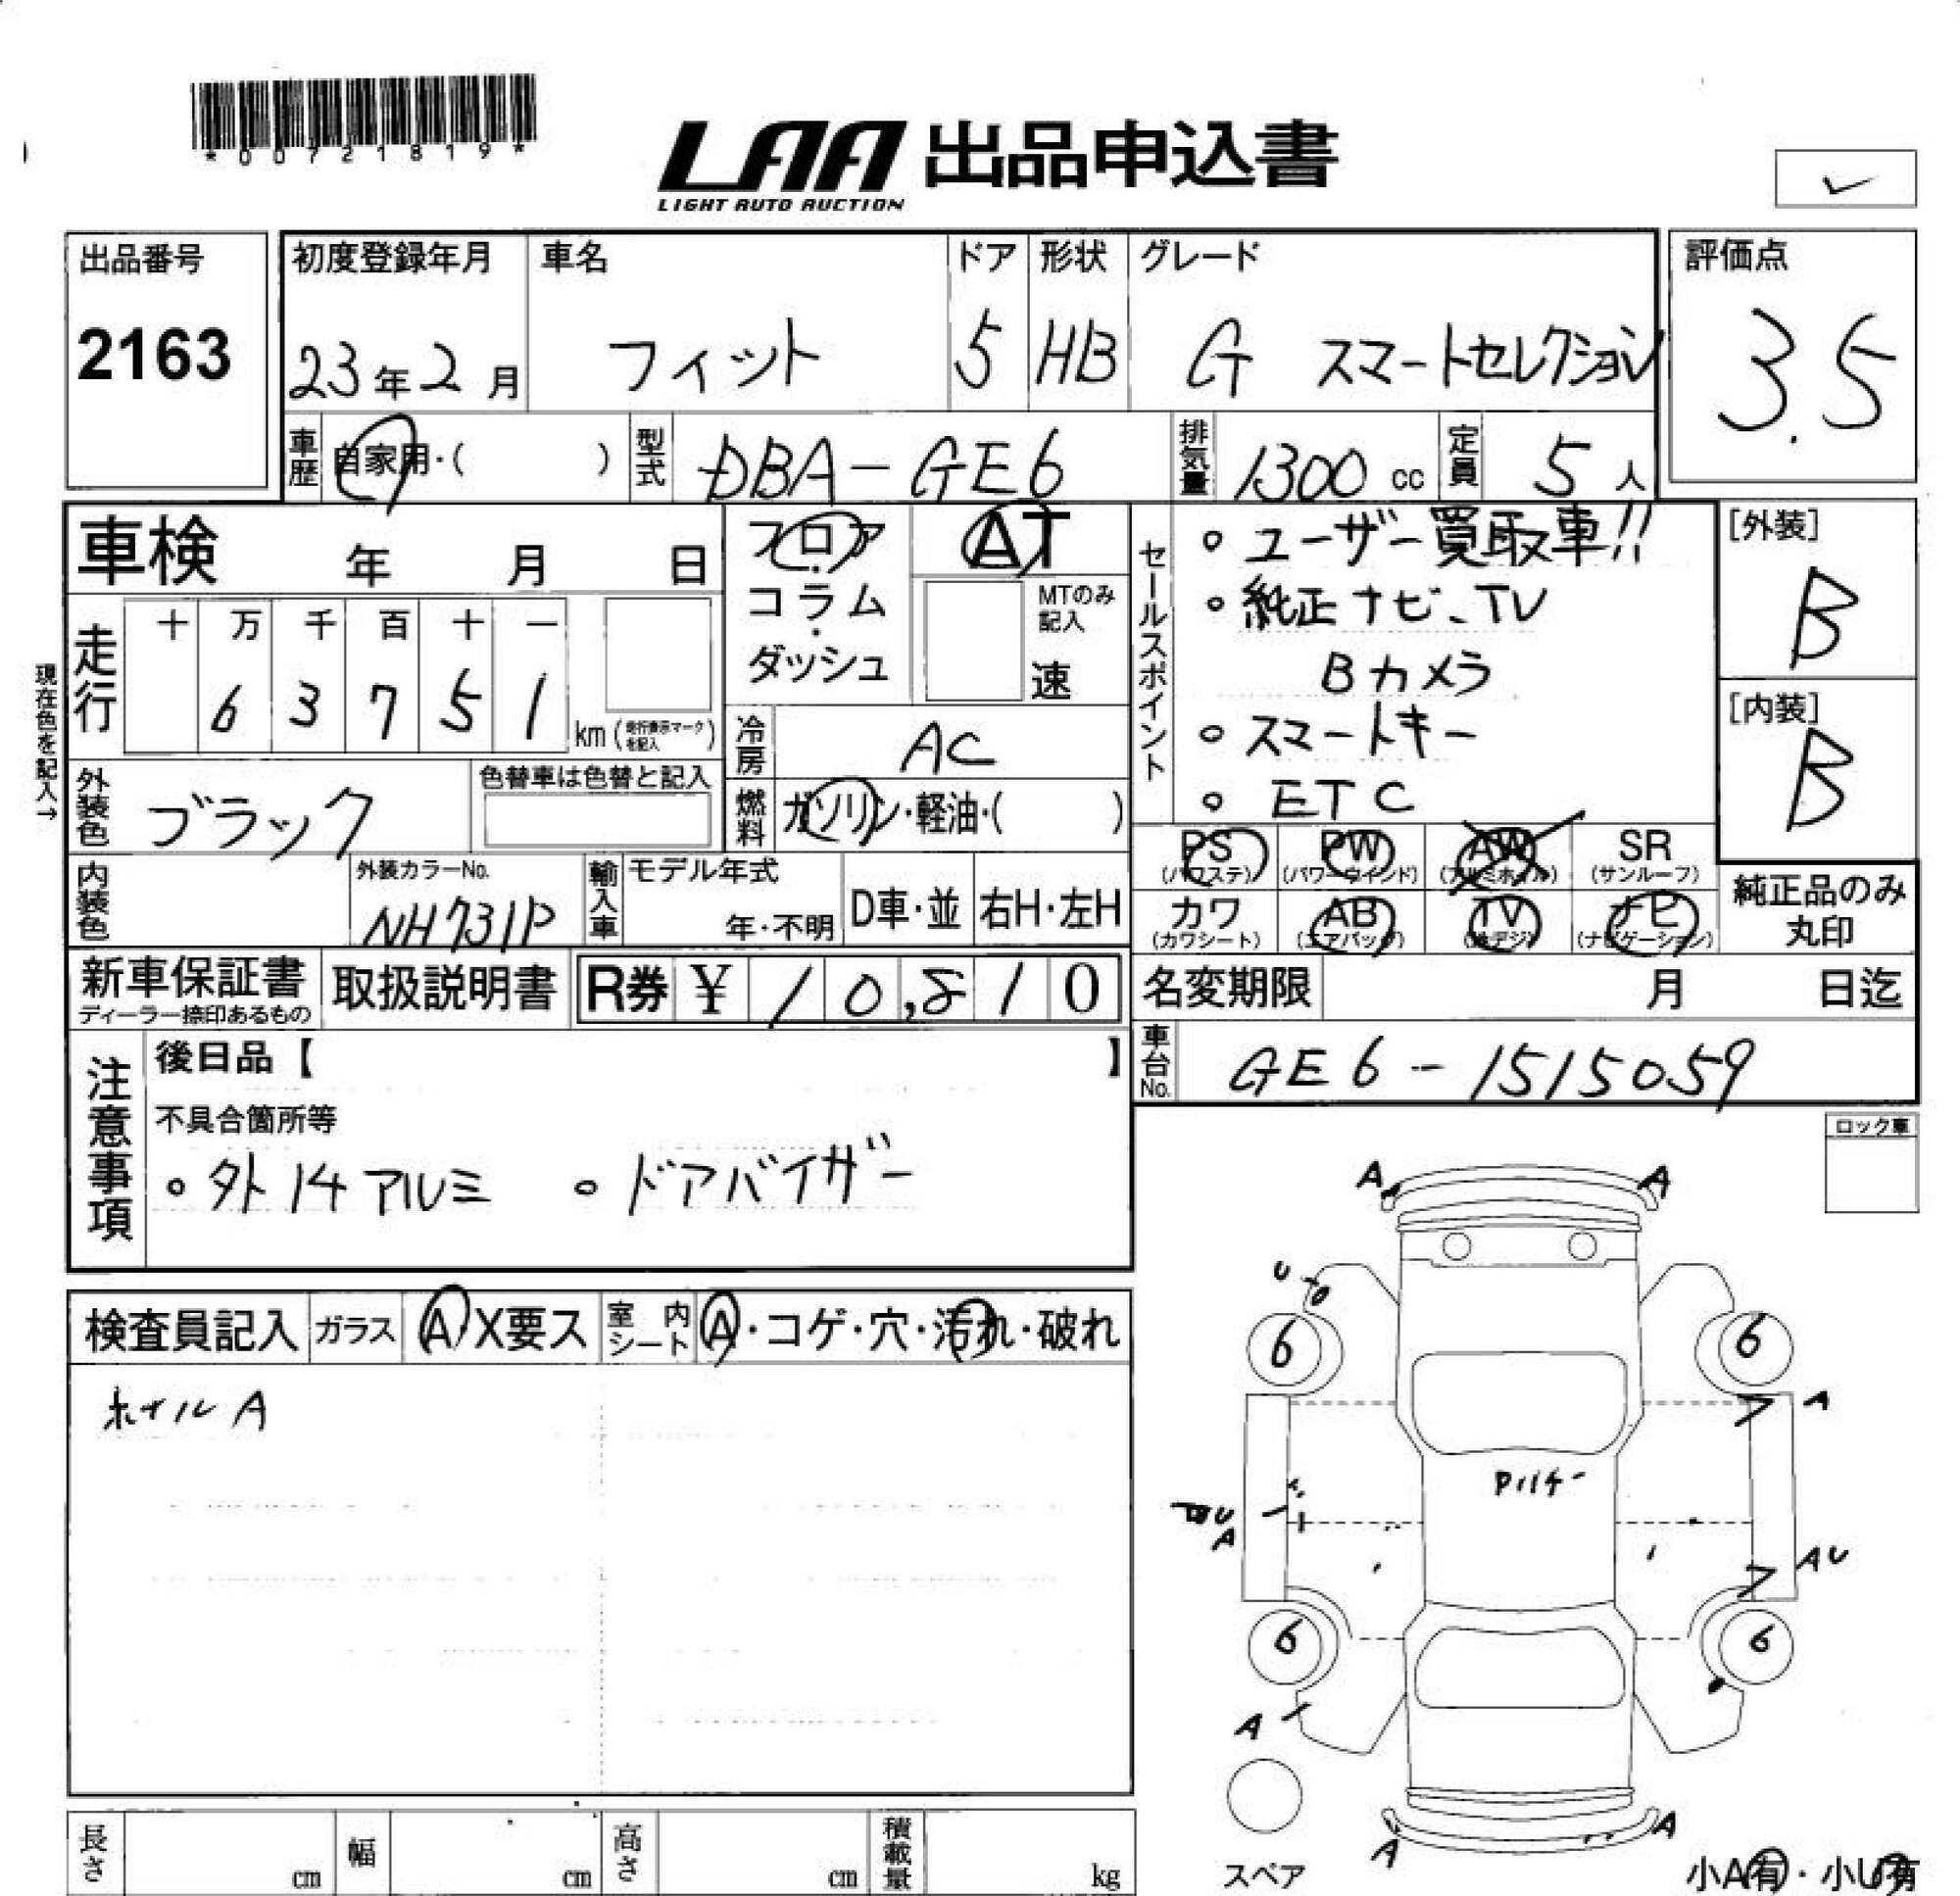 *00721819*
LAA 出品申込書
LIGHT AUTO AUCTION
✓
出品番号
2163
初度登録年月
23年2月
車名
フィット
ドア
5
形状
HB
グレード
G スマートセレクション
評価点
3.5
車歴 自家用・( )
型式 DBA-GE6
排気量 1300 cc
定員 5 人
車検 年 月 日
フロア
・
コラム
・
ダッシュ
AT
MTのみ
記入
速
現在色を記入→
走行
十 万 千 百 十 一
6 3 7 5 1
km (走行表示マークを記入)
冷房 AC
燃料 ガソリン・軽油・( )
外装色 ブラック
色替車は色替と記入
内装色
外装カラーNo.
NH731P
輸入車
モデル年式
年・不明
D車・並
右H・左H
セールスポイント
。ユーザー買取車!!
。純正ナビ、TV
Bカメラ
。スマートキー
。ETC
[外装]
B
[内装]
B
PS
(パワステ)
PW
(パワーウインド)
AW
(アルミホイル)
SR
(サンルーフ)
カワ
(カワシート)
AB
(エアバッグ)
TV
(地デジ)
ナビ
(ナビゲーション)
純正品のみ
丸印
新車保証書
ディーラー捺印あるもの
取扱説明書
R券 ¥ 10,810
名変期限 月 日迄
車台No. GE6-1515059
注意事項
後日品【 】
不具合箇所等
。外14アルミ 。ドアバイザー
ロック車
検査員記入 ガラス A X要ス 室内シート A・コゲ・穴・汚れ・破れ
ホイルA
A A
U
6 6
A
Pハイナー
U
A
AU
6 6
A
A A
スペア
小A有・小U有
長さ cm 幅 cm 高さ cm 積載量 kg